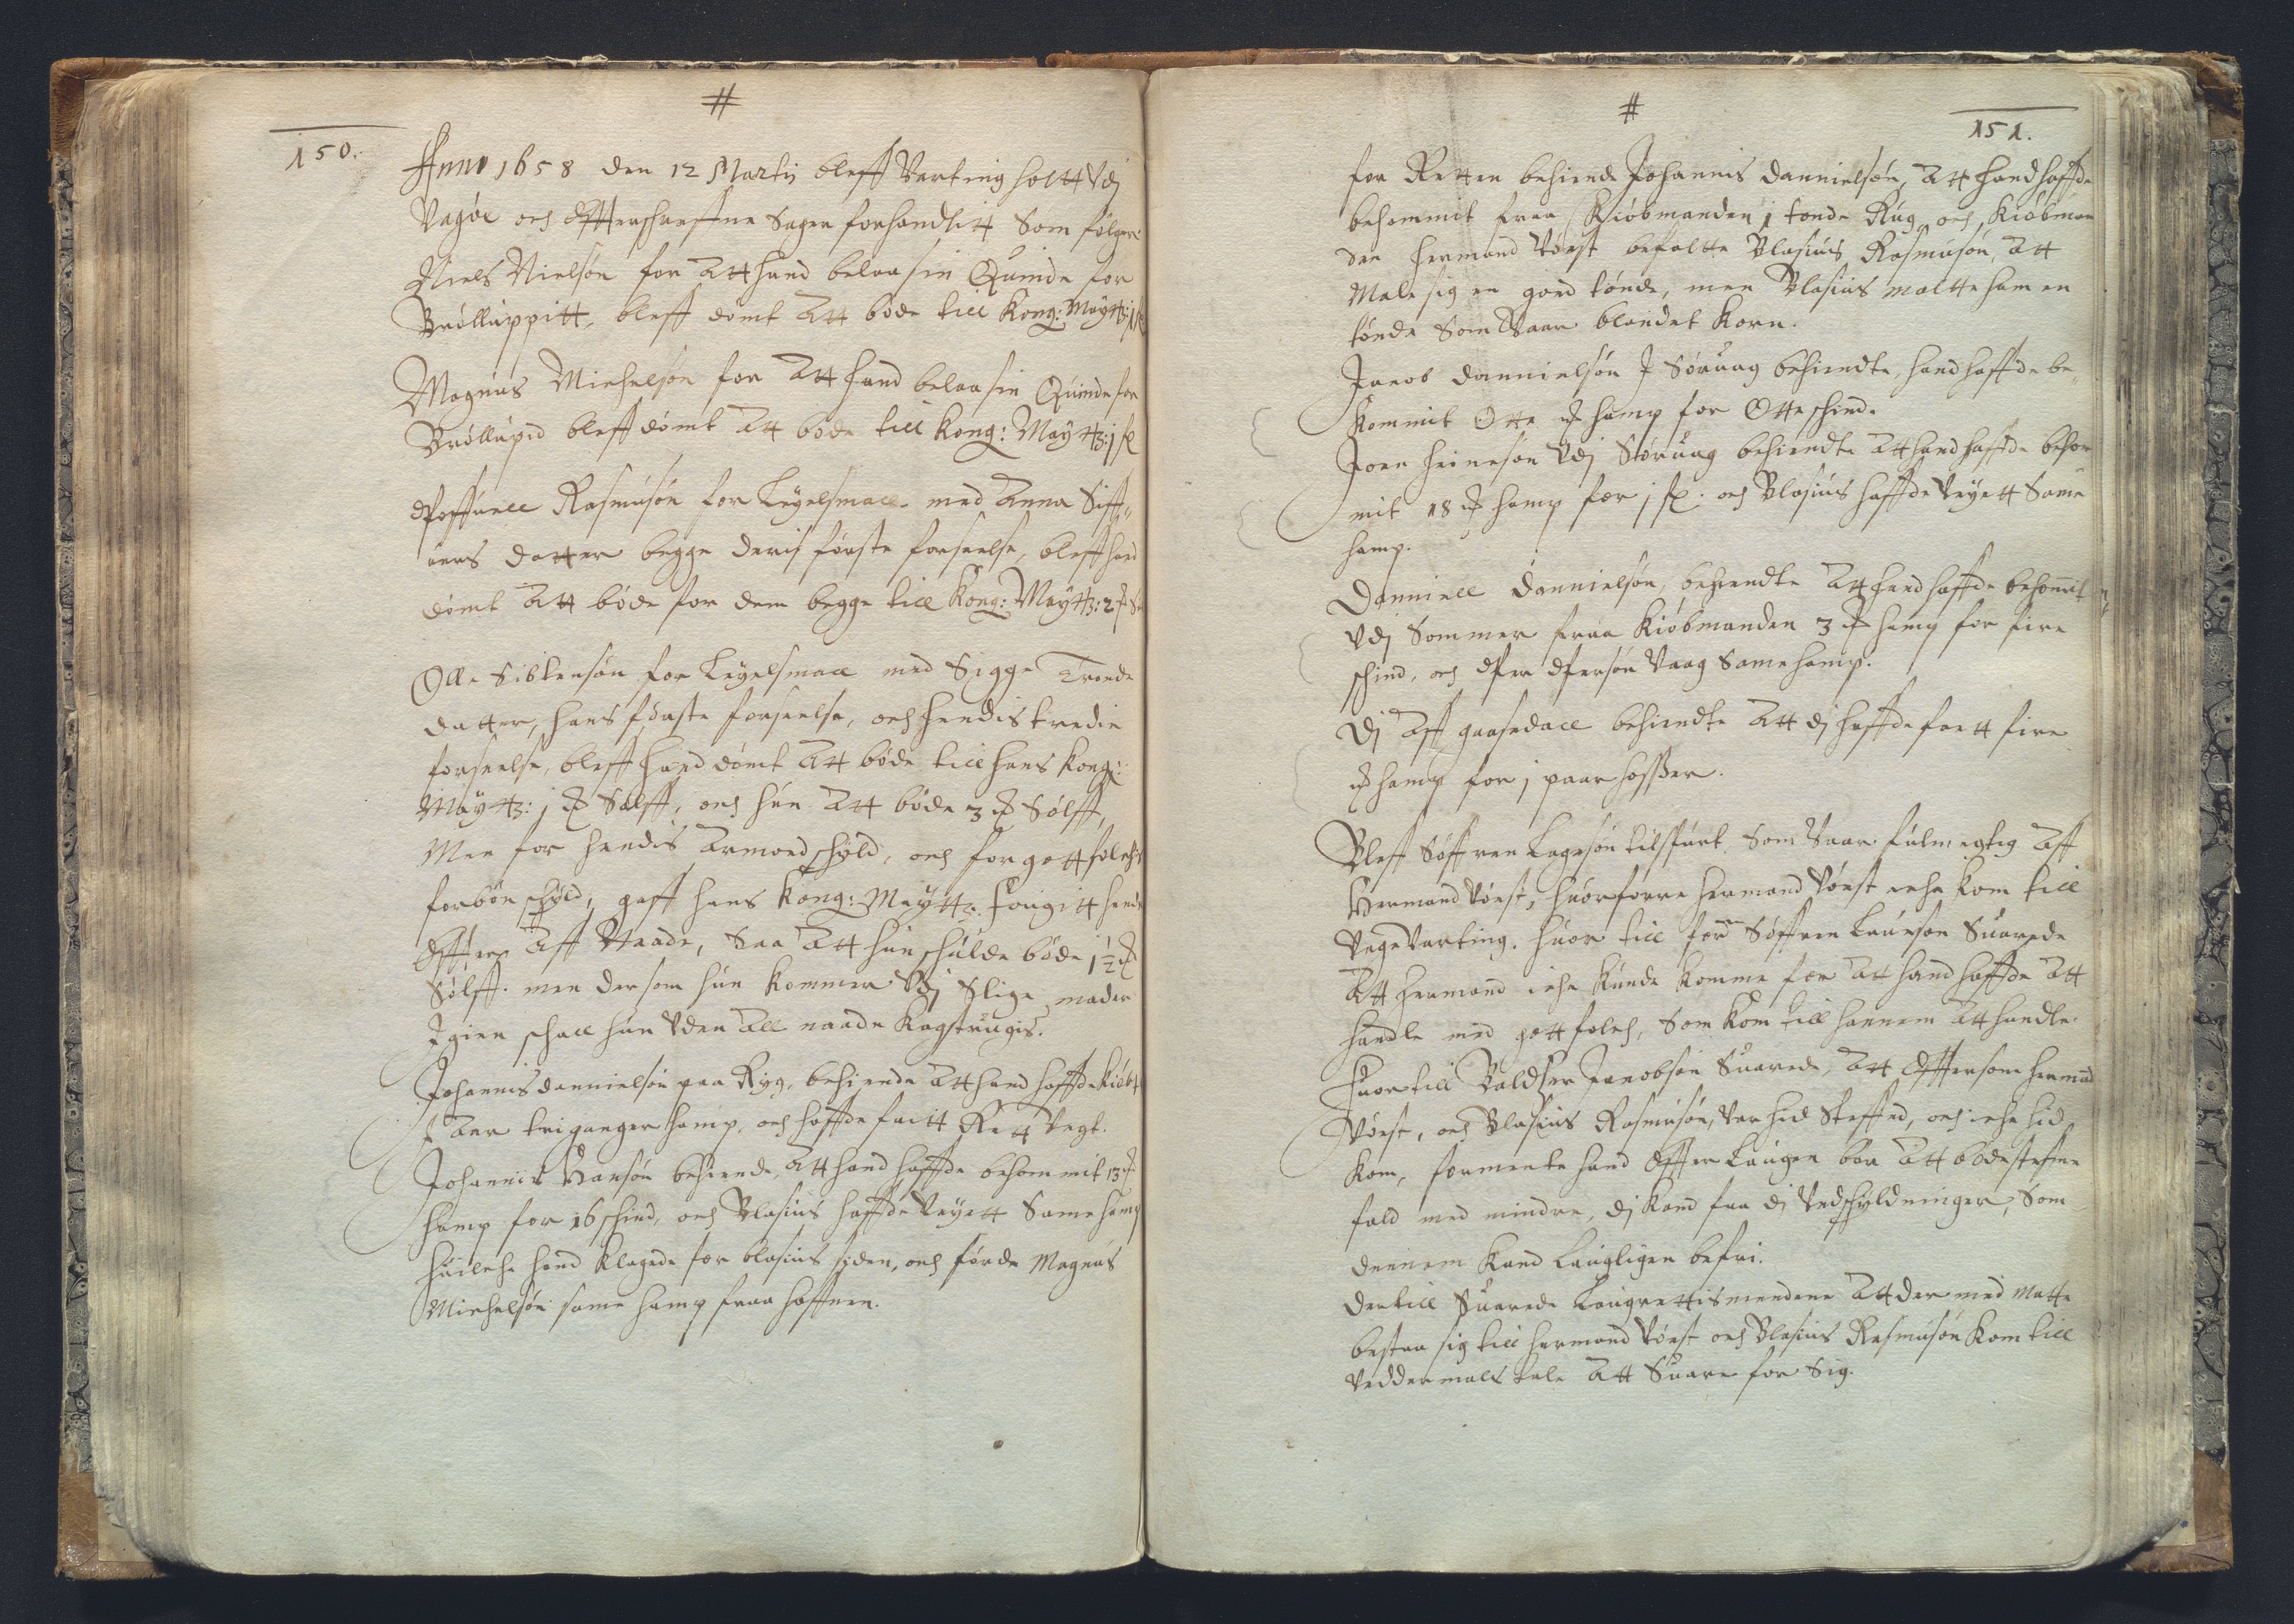 #
150.
Anno 1658 den 12 Martij bleff Varting holtt Vdj
Vagøe och Effterschreffne Sager forhandlitt Som følger
Niels Nielsøn for Att hand belaa sin Quinde for
Brølluppitt, bleff dømt Att bøde till Kong: Maytt:
Magnus Michelsøn for Att hand belaa sin Quinde for
Brøllupid bleff dømt Att bøde till Kong: Maytt: j
Poffuell Rasmusøn for Leyelsmaall med Anna Siff„
uers datter begge deris første forseelse, bleff hand
dømt Att bøde for dem begge till Kong: Maytt: 2
Olle Sibtensøn for Leyelsmaall med Sigge Tronde
datter, hans første forseelse, och hendis tredie
forseelse, bleff hand dømt Att bøde till hans Kong:
Maytt: j Sølff, och hun Att bøde 3 Sølff,
Men for hendis Armod schyld, och for gott folchis
forbøn schyld, gaff hans Kong: Maytts: fougitt hende
Effter Aff Naade, Saa Att hun schulde bøde 1½
Sølff. men der som hun kommer Vdj Slige mader
Igien schall hun Vden All naade Kagstrugis.
Johannis dannielsøn paa Ryg, bekiende Att hand haffde kiøbt
J Aar triganger hamp, och haffde faaitt Rett Vegt.
Johannis Hansøn bekiende, Att hand haffde bekommit 13
hamp for 16 schind, och Blasius haffde Veyett Same hamp
huilche hand klagede for blasius siden, och førde Magnus
Michelsøn same hamp fraa haffnen.
#
151.
for Retten bekiende Johannis dannielsøn, Att hand haffde
bekommit fraa Kiøbmanden j tønde Rug, och Kiøbman
den Hermand Vørst befalte Blasius Rasmusøn, Att
Male sig en goed tønde, men Blasius maltte ham en
tønde Som Vaar blandet Korn.
Jacob dannielsøn J Søruag bekiendte, hand haffde be„
kommit Otte hamp for Otte schind.
Joen Heinesøn Vdj Søruag bekiendte Att hand haffde bekom
mit 18 hamp for j och Blasius haffde Veyett Same
hamp.
Danniell Dannielsøn, bekiendte Att hand haffde bekommit
Vdj Sommer fraa Kiøbmanden 3 hamp for fire
schind, och Per Persøn Vaag Same hamp.
Dj Aff gaasedall bekiendte Att dj haffde faatt fire
hamp for j paar hosser.
Bleff Søffren Lagesøn tilspurt, Som Vaar fulmegtig Aff
Hermand Vørst, huorforre Hermand Vørst iche kom till
Vage Varting. huor till for: Søffren Laursøn Suarede
Att Hermand iche kunde komme for Att hand haffde Att
handle med gott folch, Som kom till hannem Att handle.
Huortill Baldser Jacobsøn Suarede, Att Effter som Hermand
Vørst, och Blasius Rasmusøn, Var hid Steffned, och iche hid
kom, formente hand Effter Laugen bør Att bøde steffne
fald med mindre, dj kand faa dj Vndschyldninger, Som
dennem kand Laugligen befri.
dertill Suarede Laugrettismendene Att der med Motte
bestaa sig till Hermand Vørst och Blasius Rasmusøn kom till
Veddermals tale Att Suare for Sig.